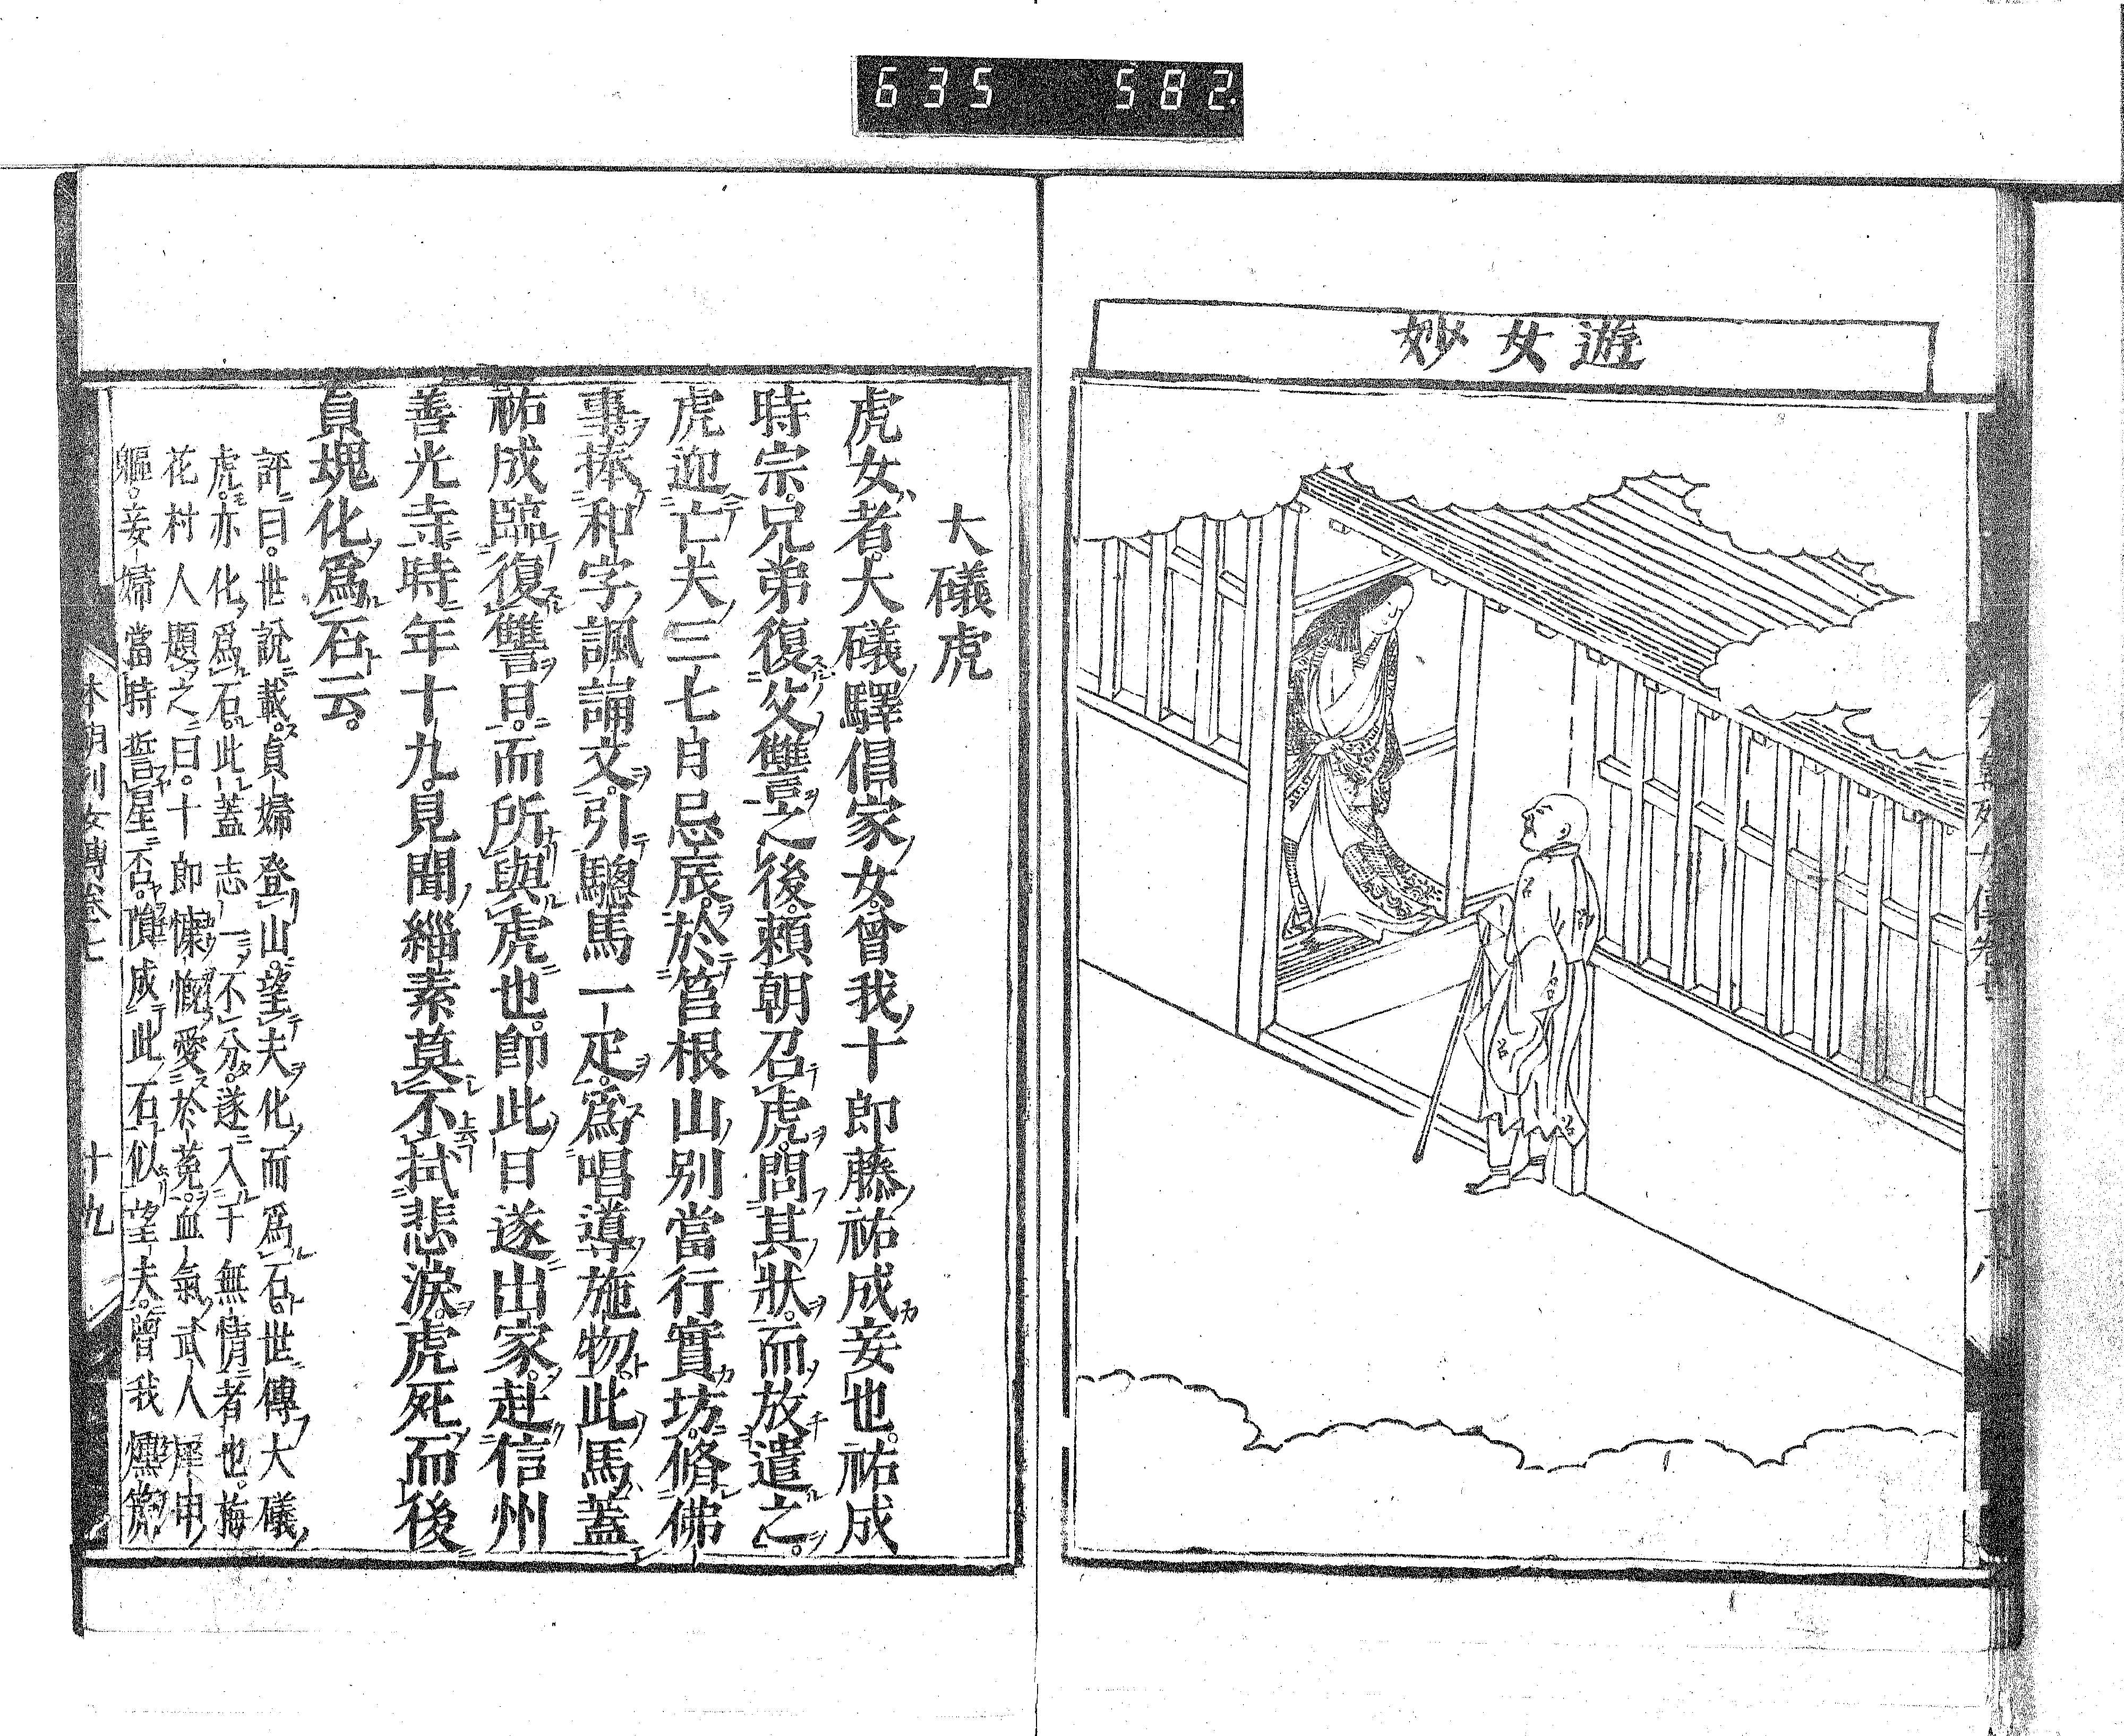 635 582.
遊女妙
大礒虎
虎女者。大礒驛倡家女。曾我十郎藤祐成妾也。祐成
時宗。兄弟復父讐之後。頼朝召虎。問其狀。而放遣之。
虎迎亡夫三七日忌辰。於筥根山別當行實坊。脩佛
事。捧和字諷誦文。引驄馬一疋。爲唱導施物。此馬蓋
祐成臨復讐日。而所與虎也。卽此日遂出家。赴信州
善光寺。時年十九。見聞緇素莫不拭悲淚。虎死而後
貞魂化爲石云。
評曰。世說載。貞婦登山。望夫化而爲石。世傳大礒
虎。亦化爲石。此蓋志一不分。遂入于無情者也。梅
花村人題之曰。十郎慷慨愛於菟。血氣武人屠申
軀。妾婦當時誓星否。隕成此石似望夫。曾我
本朝列女傳卷七
十九